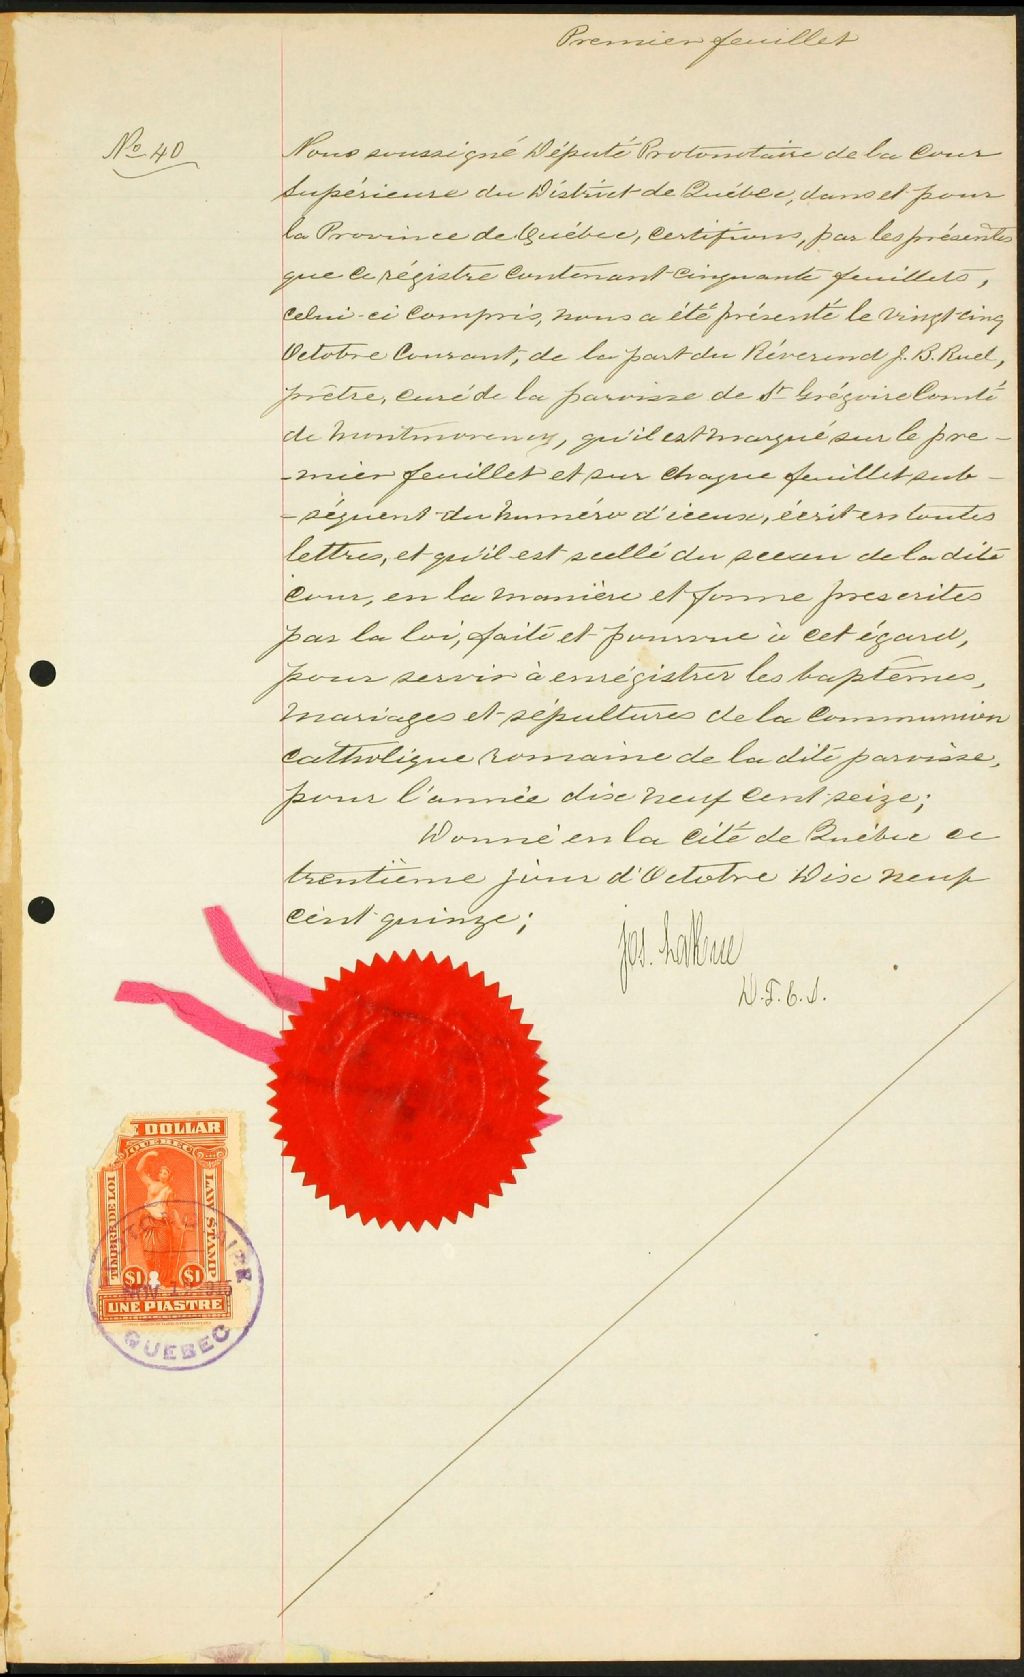 Premier feuillet
No 40
Nous soussigné Député Protonotaire de la Cour
Supérieure du District de Québec, dans et pour
la Province de Québec, certifions, par les présentes
que ce régistre contenant cinquante feuillets,
celui-ci compris, nous a été présenté le vingt cinq
Octobre Courant, de la part du Révérend J. B. Ruel,
prêtre, curé de la paroisse de St Grégoire Comté
de Montmorency, qu'il est marqué sur le pre-
-mier feuillet et sur chaque feuillet sub-
-séquent du numéro d'iceux, écrit en toutes
lettres, et qu'il est scellé du sceau de la dite
Cour, en la manière et forme prescrites
par la loi, faite et pourvue à cet égard,
pour servir à enrégistrer les baptêmes,
mariages et sépultures de la Communion
catholique romaine de la dite paroisse,
pour l'année dix neuf cent seize;
Donné en la Cité de Québec ce
trentième jour d'Octobre Dix neuf
cent quinze;
Jos. LaRue
D.P.C.S.
E DOLLAR
QUEBEC
TIMBRE DE LOI
LAW STAMP
$1 $1
NOV
UNE PIASTRE
QUEBEC